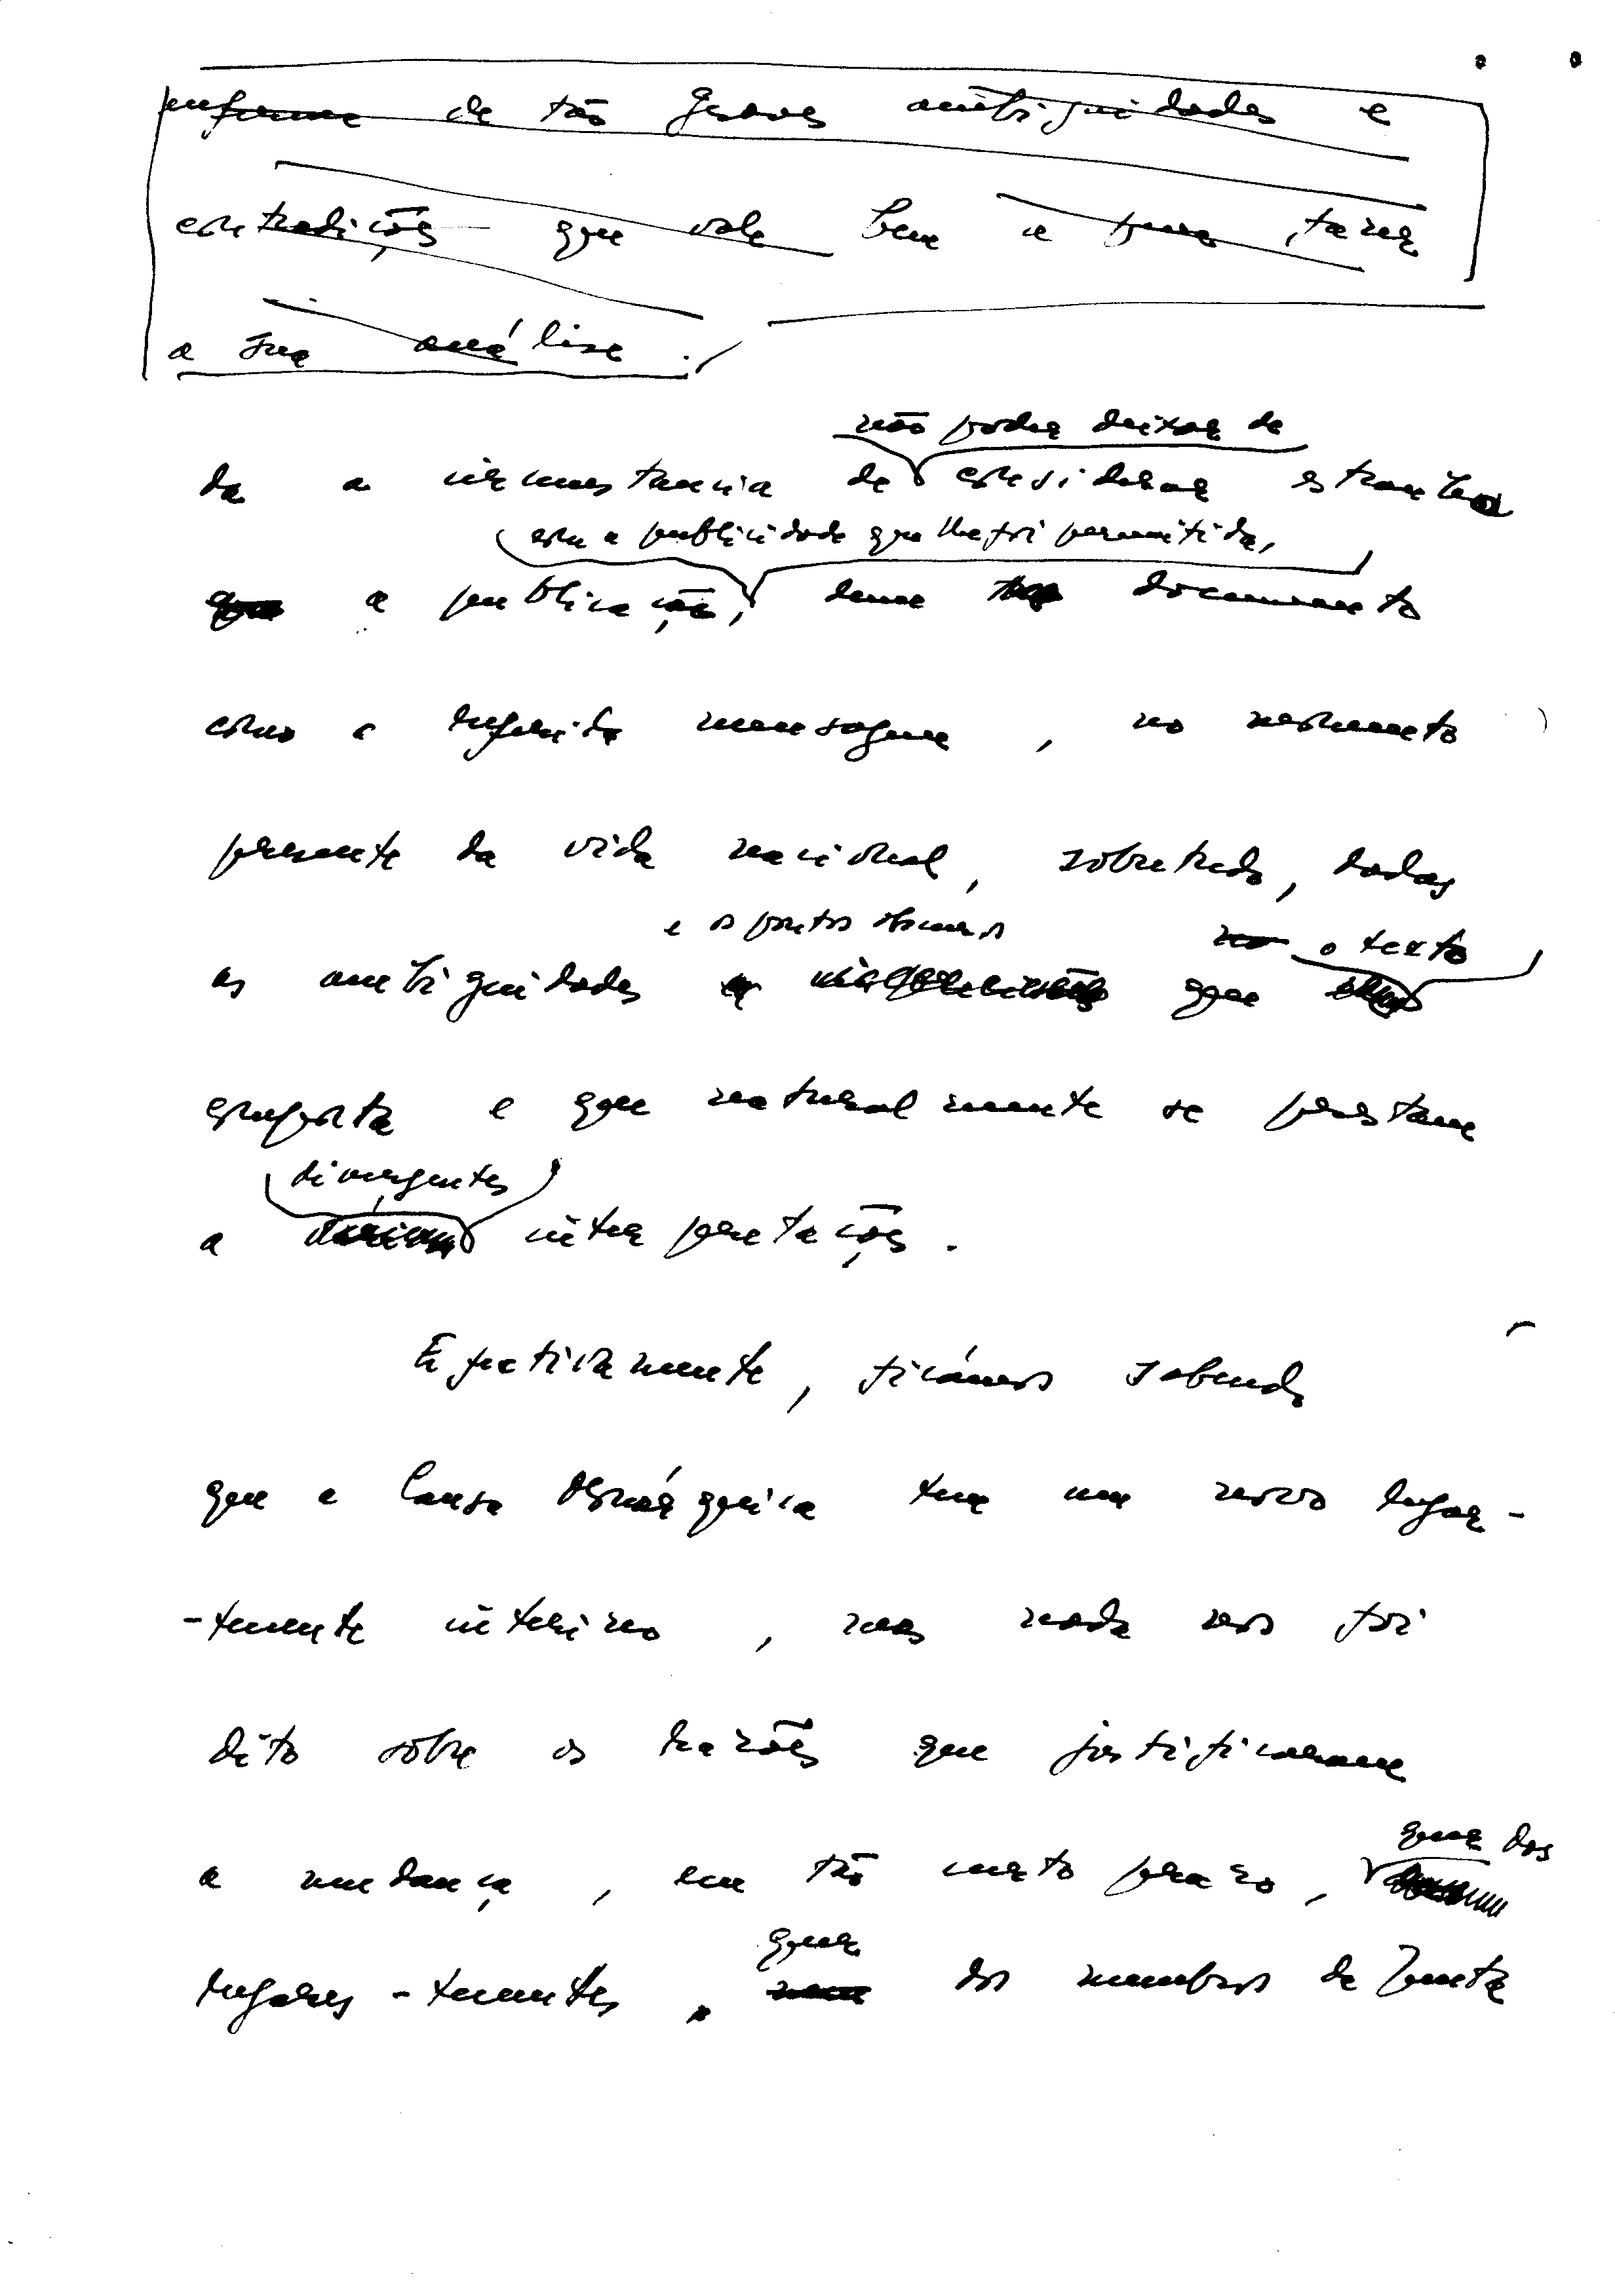 enferma de tão graves ambiguidades e
contradições que vale bem a pena fazer
a sua análise.
não poder deixar de
da a circunstancia de considerar estranha
com a publicidade que lhe foi permitida,
que a publicação, dum documento
como a referida mensagem, no momento
presente da vida nacional, sobretudo, dadas
e os pontos obscuros no o texto
as ambiguidades e que
comporta e que naturalmente se prestam
divergentes
a várias interpretações.
Efectivamente, ficámos sabendo
que a Causa Monárquica tem um novo lugar-
-tenente interino, mas nada nos foi
dito sobre as razões que justificaram
quer dos
a mudança, em tão curto prazo,
quer
lugares-tenentes, nem dos membros da Junta